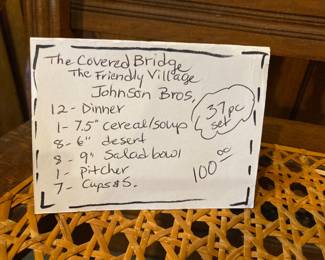 The Covered Bridge
The Friendly Village
Johnson Bros.
12 - Dinner
1 - 7.5" cereal/soup
8 - 6" desert
8 - 9" Salad bowl
1 - pitcher
7 - Cups & S.
37 pc
set
100.00